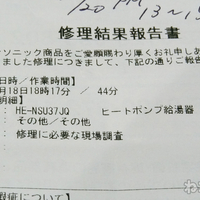 修理結果報告書
ソニック商品をご愛顧賜わり厚くお礼申しあ
ました修理につきまして、下記の通りご報告
日時／作業時間】
月18日18時17分 ／ 44分
明細】
： HE-NSU37JQ ヒートポンプ給湯器
： その他／その他
： 修理に必要な現場調査